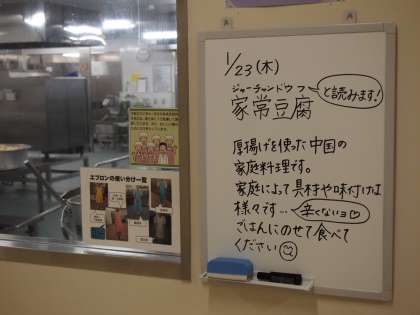 1/23(木)
ジャーチャンドウフ
家常豆腐
と読みます!
厚揚げを使った中国の
家庭料理です。
家庭によって具材や味付けは
様々です…辛くないヨ♡
ごはんにのせて食べて
ください
エプロンの使い分け一覧